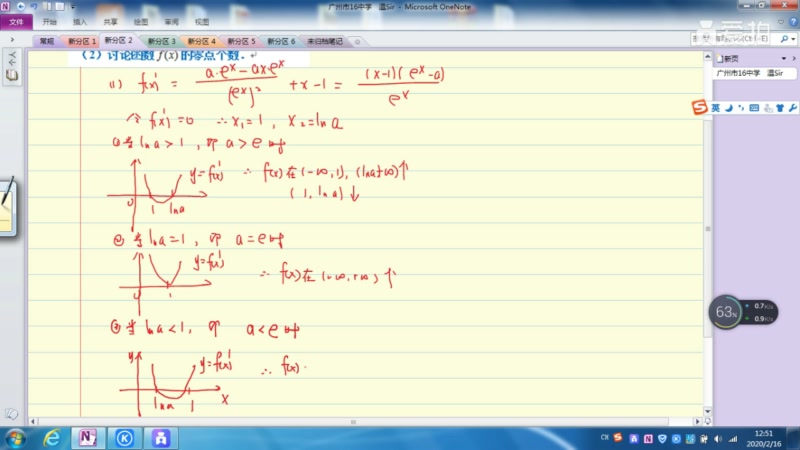 广州市16中学 温Sir - Microsoft OneNote
文件 开始 插入 共享 绘图 审阅 视图
常规 新分区 1 新分区 2 新分区 3 新分区 4 新分区 5 新分区 6 未归档笔记
新页
广州市16中学 温Sir
(2) 讨论函数 f(x) 的零点个数.
(1) f(x)' = (a·e^x - ax·e^x)/(e^x)^2 + x - 1 = (x-1)(e^x-a)/e^x
令 f(x)'=0 ∴ x₁=1, x₂=ln a
①当 ln a>1, 即 a>e 时
y=f(x)' ∴ f(x)在(-∞,1),(lna,+∞)↑
0 1 lna (1, ln a)↓
②当 ln a=1, 即 a=e 时
y=f(x)' ∴ f(x)在(-∞,+∞)↑
0 1
③当 ln a<1, 即 a<e 时
y y=f(x)' ∴ f(x)
lna 1 x
英
63%
0.7K/s
0.9K/s
CH
12:51
2020/2/16